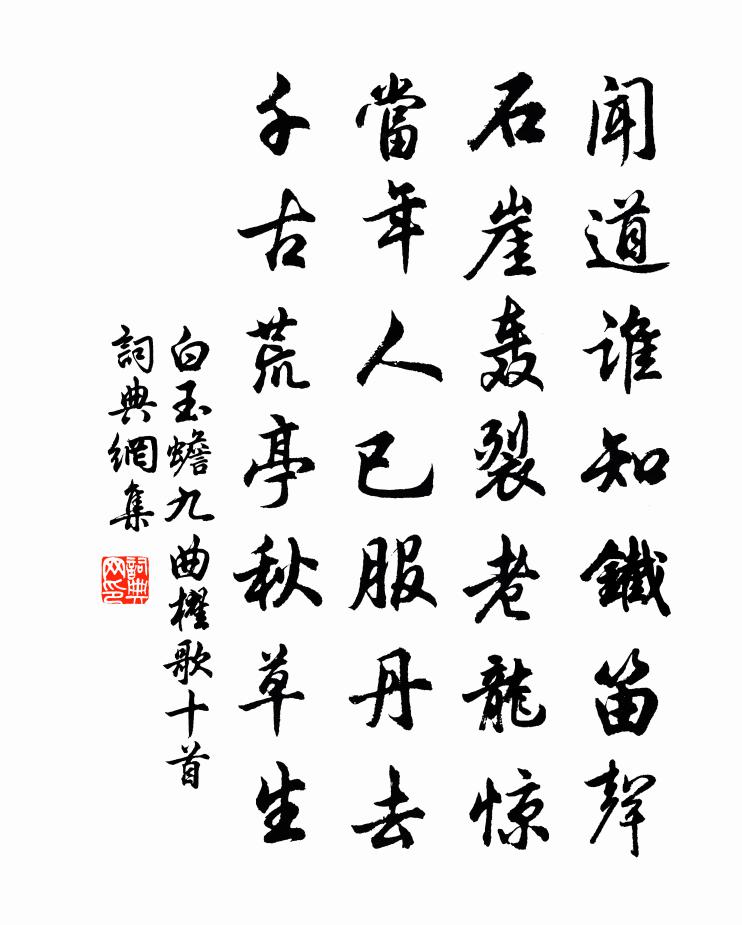 闻道谁知鐵笛聲
石崖轰裂老龍惊
當年人已服丹去
千古荒亭秋草生
白玉蟾九曲櫂歌十首
詞典網集
詞典网印